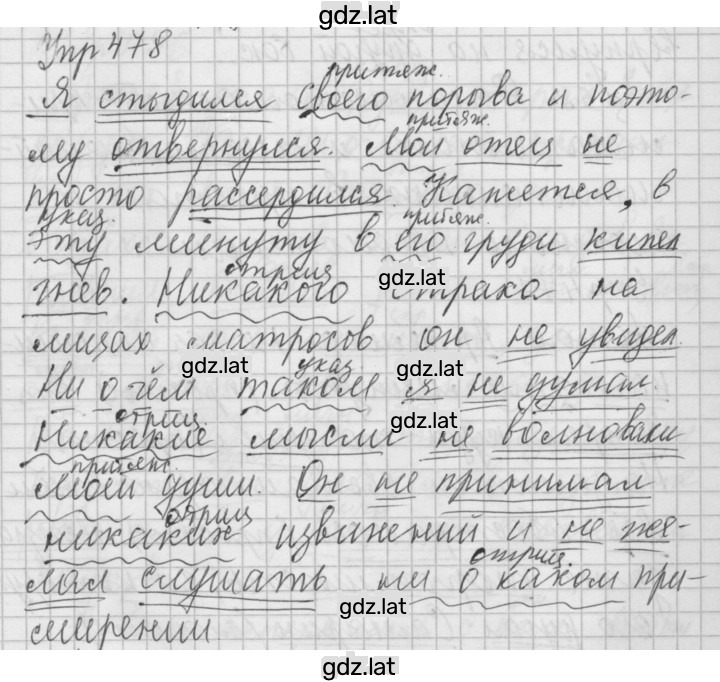 gdz.lat
Упр 478
притяж.
Я стыдился своего порыва и поэто-
притяж.
му отвернулся. Мой отец не
просто рассердился. Кажется, в
указ. притяж.
эту минуту в его груди кипел
отриц gdz.lat
гнев. Никакого страха на
лицах матросов он не увидел.
gdz.lat указ gdz.lat
Ни о чём таком я не думал.
отриц gdz.lat
Никакие мысли не волновали
притяж.
моей души. Он не принимал
отриц
никаких извинений и не же-
отриц.
лал слушать ни о каком при-
gdz.lat
мирении
gdz.lat